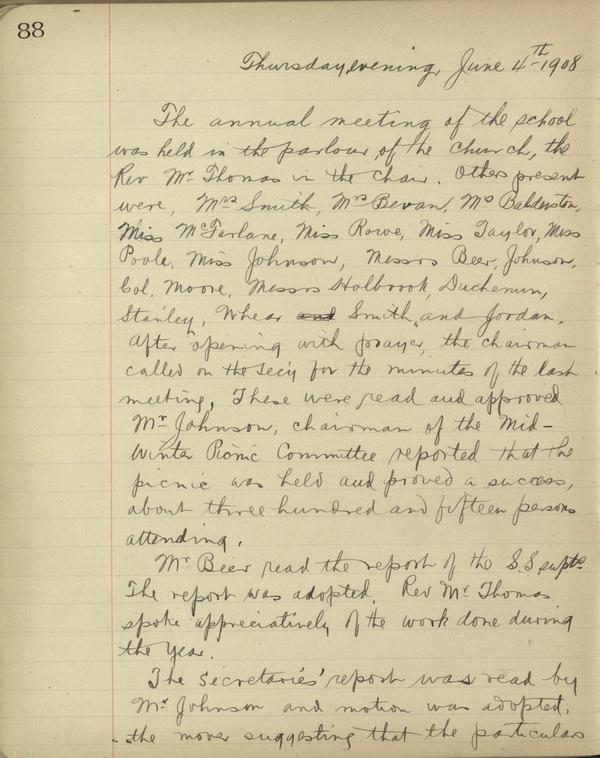 88
Thursday evening, June 4th 1908
The annual meeting of the school
was held in the parlour of the church, the
Rev Mr. Thomas in the chair. Others present
were, Mrs Smith, Mrs Bevan, Ms Balderston,
Miss McFarlane, Miss Rowe, Miss Taylor, Miss
Poole, Miss Johnson, Messrs Beer, Johnson,
Col. Moore, Messrs Holbrook, Duchemin,
Stanley, Whear and Smith, and Jordan.
After opening with prayer, the chairman
called on the Secy for the minutes of the last
meeting, These were read and approved
Mr Johnson, chairman of the Mid-
Winter Picnic Committee reported that the
picnic was held and proved a success,
about three hundred and fifteen persons
attending.
Mr Beer read the report of the S.S. supts
The report was adopted. Rev Mr. Thomas
spoke appreciatively of the work done during
the year.
The Secretaries' report was read by
Mr Johnson and motion was adopted,
the mover suggesting that the particulars